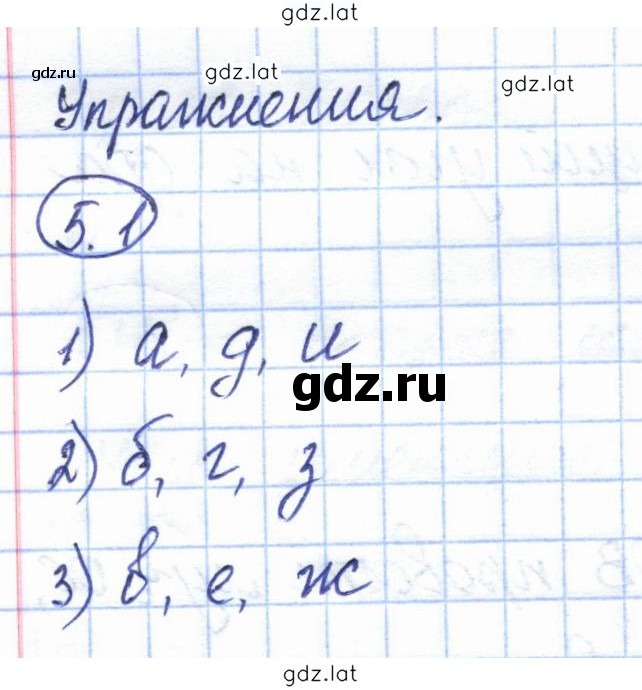 gdz.lat
gdz.ru
gdz.lat
gdz.lat
Упражнения.
5.1
1) а, д, и
gdz.ru
2) б, г, з
3) в, е, ж
gdz.lat